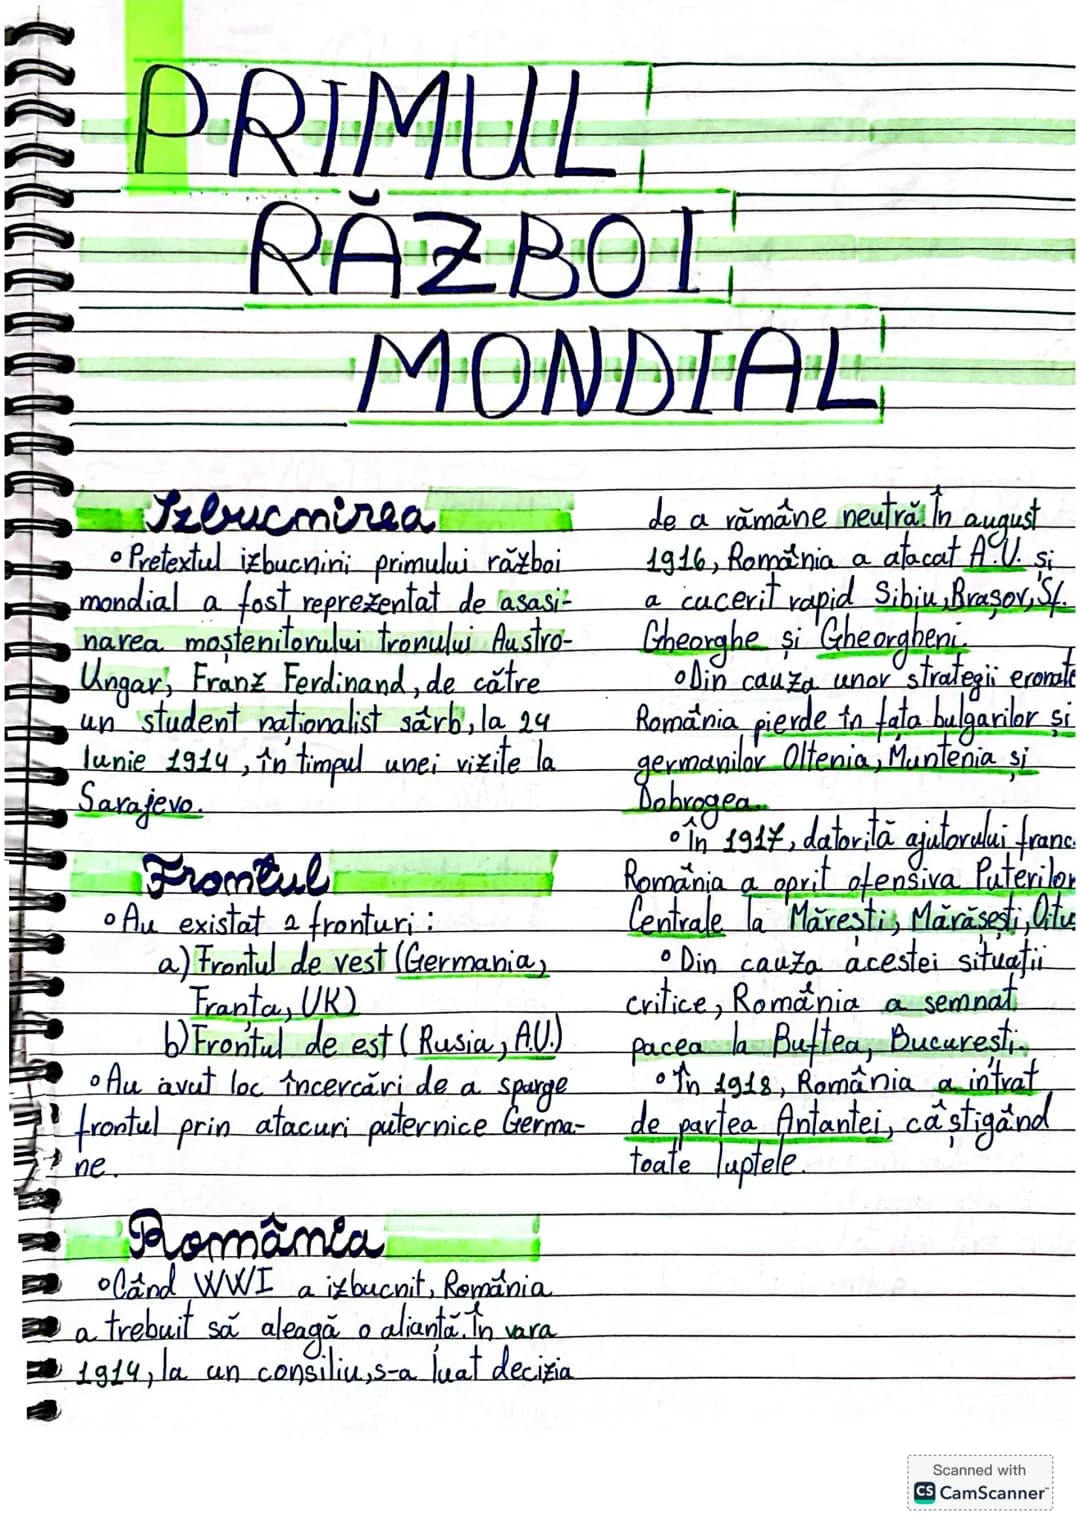 PRIMUL
RĂZBOI
MONDIAL
Izbucnirea
• Pretextul izbucnirii primului război
mondial a fost reprezentat de asasi-
narea moștenitorului tronului Austro-
Ungar, Franz Ferdinand, de către
un student naționalist sârb, la 24
Iunie 1914, în timpul unei vizite la
Sarajevo.
Frontul
• Au existat 2 fronturi:
a) Frontul de vest (Germania,
Franța, UK)
b) Frontul de est (Rusia, A.U.)
• Au avut loc încercări de a sparge
frontul prin atacuri puternice Germa-
ne.
România
• Când WWI a izbucnit, România
a trebuit să aleagă o alianță. În vara
1914, la un consiliu, s-a luat decizia
de a rămâne neutră. În august
1916, România a atacat A.U. și
a cucerit rapid Sibiu, Brașov, Sf.
Gheorghe și Gheorgheni.
• Din cauza unor strategii eronate
România pierde în fața bulgarilor și
germanilor Oltenia, Muntenia și
Dobrogea.
• În 1917, datorită ajutorului franc.
România a oprit ofensiva Puterilor
Centrale la Mărești, Mărășești, Oituz
• Din cauza acestei situații
critice, România a semnat
pacea la Buftea, București.
• În 1918, România a intrat
de partea Antantei, câștigând
toate luptele.
Scanned with
CS CamScanner